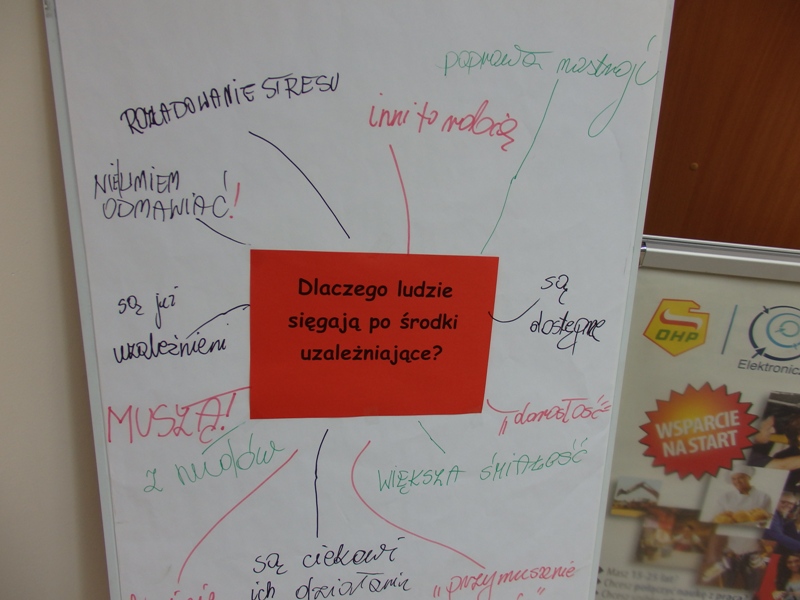 poprawa nastroju
ROZŁADOWANIE STRESU
inni to robią
NIE UMIEM
ODMAWIAĆ!
są już
uzależnieni
Dlaczego ludzie
sięgają po środki
uzależniające?
są
dostępne
MUSZĄ!
"dorosłość"
z nudów
WIĘKSZA ŚMIAŁOŚĆ
są ciekawi
ich działania
"przymuszanie
OHP
Elektronicz
WSPARCIE
NA START
Masz 15-25 lat?